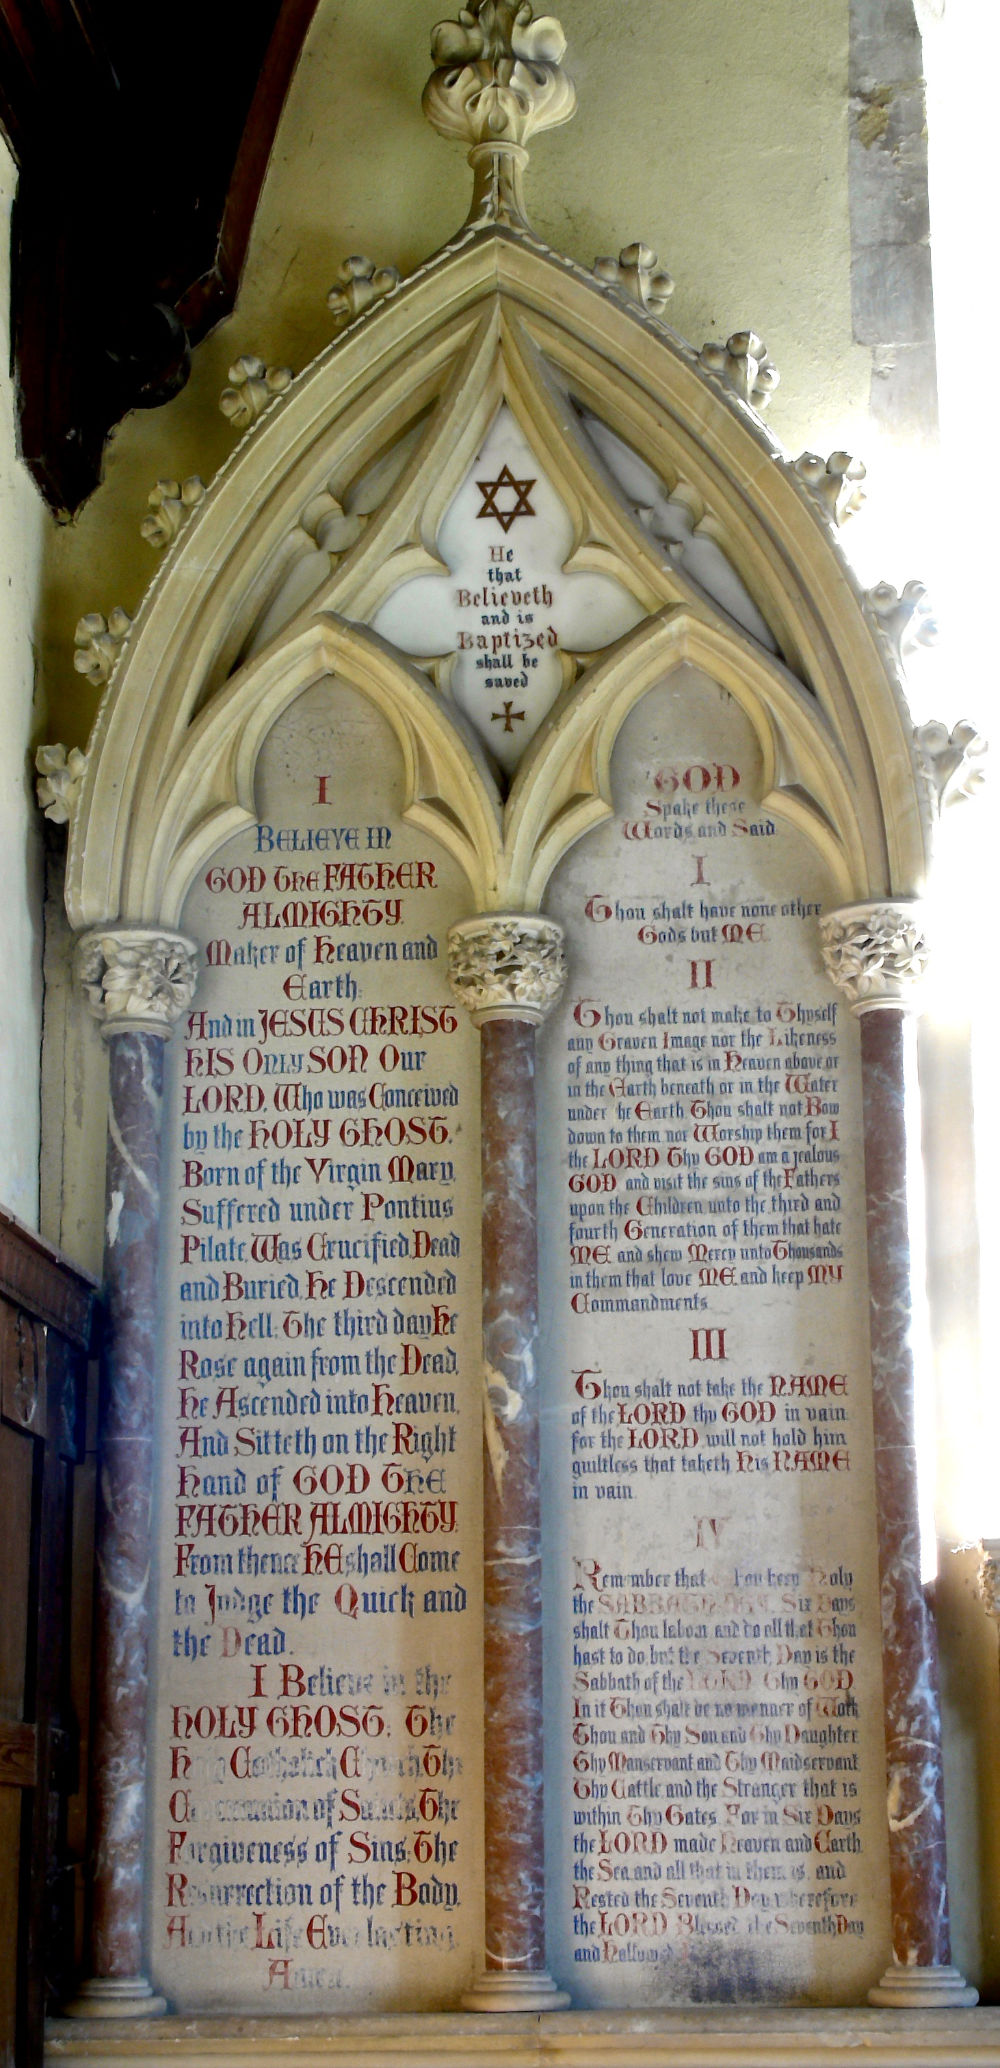 He
that
Believeth
and is
Baptized
shall be
saved
I
BELIEVE IN
GOD The FATHER
ALMIGHTY,
Maker of Heaven and
Earth:
And in JESUS CHRIST
HIS Only SON Our
LORD, Who was Conceived
by the HOLY GHOST,
Born of the Virgin Mary,
Suffered under Pontius
Pilate, Was Crucified, Dead
and Buried, He Descended
into Hell; The third day He
Rose again from the Dead,
He Ascended into Heaven,
And Sitteth on the Right
Hand of GOD The
FATHER ALMIGHTY;
From thence HE shall Come
to Judge the Quick and
the Dead.
I Believe in the
HOLY GHOST; The
Holy Catholick Church; The
Communion of Saints; The
Forgiveness of Sins; The
Resurrection of the Body,
And the Life Everlasting.
Amen.
GOD
Spake these
Words and Said
I
Thou shalt have none other
Gods but ME.
II
Thou shalt not make to Thyself
any Graven Image nor the Likeness
of any thing that is in Heaven above or
in the Earth beneath or in the Water
under the Earth Thou shalt not Bow
down to them nor Worship them for I
the LORD Thy GOD am a jealous
GOD and visit the sins of the Fathers
upon the Children unto the third and
fourth Generation of them that hate
ME and shew Mercy unto Thousands
in them that love ME and keep MY
Commandments.
III
Thou shalt not take the NAME
of the LORD thy GOD in vain:
for the LORD will not hold him
guiltless that taketh HIS NAME
in vain.
IV
Remember that Thou keep Holy
the SABBATH DAY. Six Days
shalt Thou labour and do all that Thou
hast to do, but the Seventh Day is the
Sabbath of the LORD Thy GOD.
In it Thou shalt do no manner of Work
Thou and Thy Son and Thy Daughter
Thy Manservant and Thy Maidservant
Thy Cattle and the Stranger that is
within Thy Gates. For in Six Days
the LORD made Heaven and Earth
the Sea and all that in them is, and
Rested the Seventh Day wherefore
the LORD Blessed the Seventh Day
and Hallowed